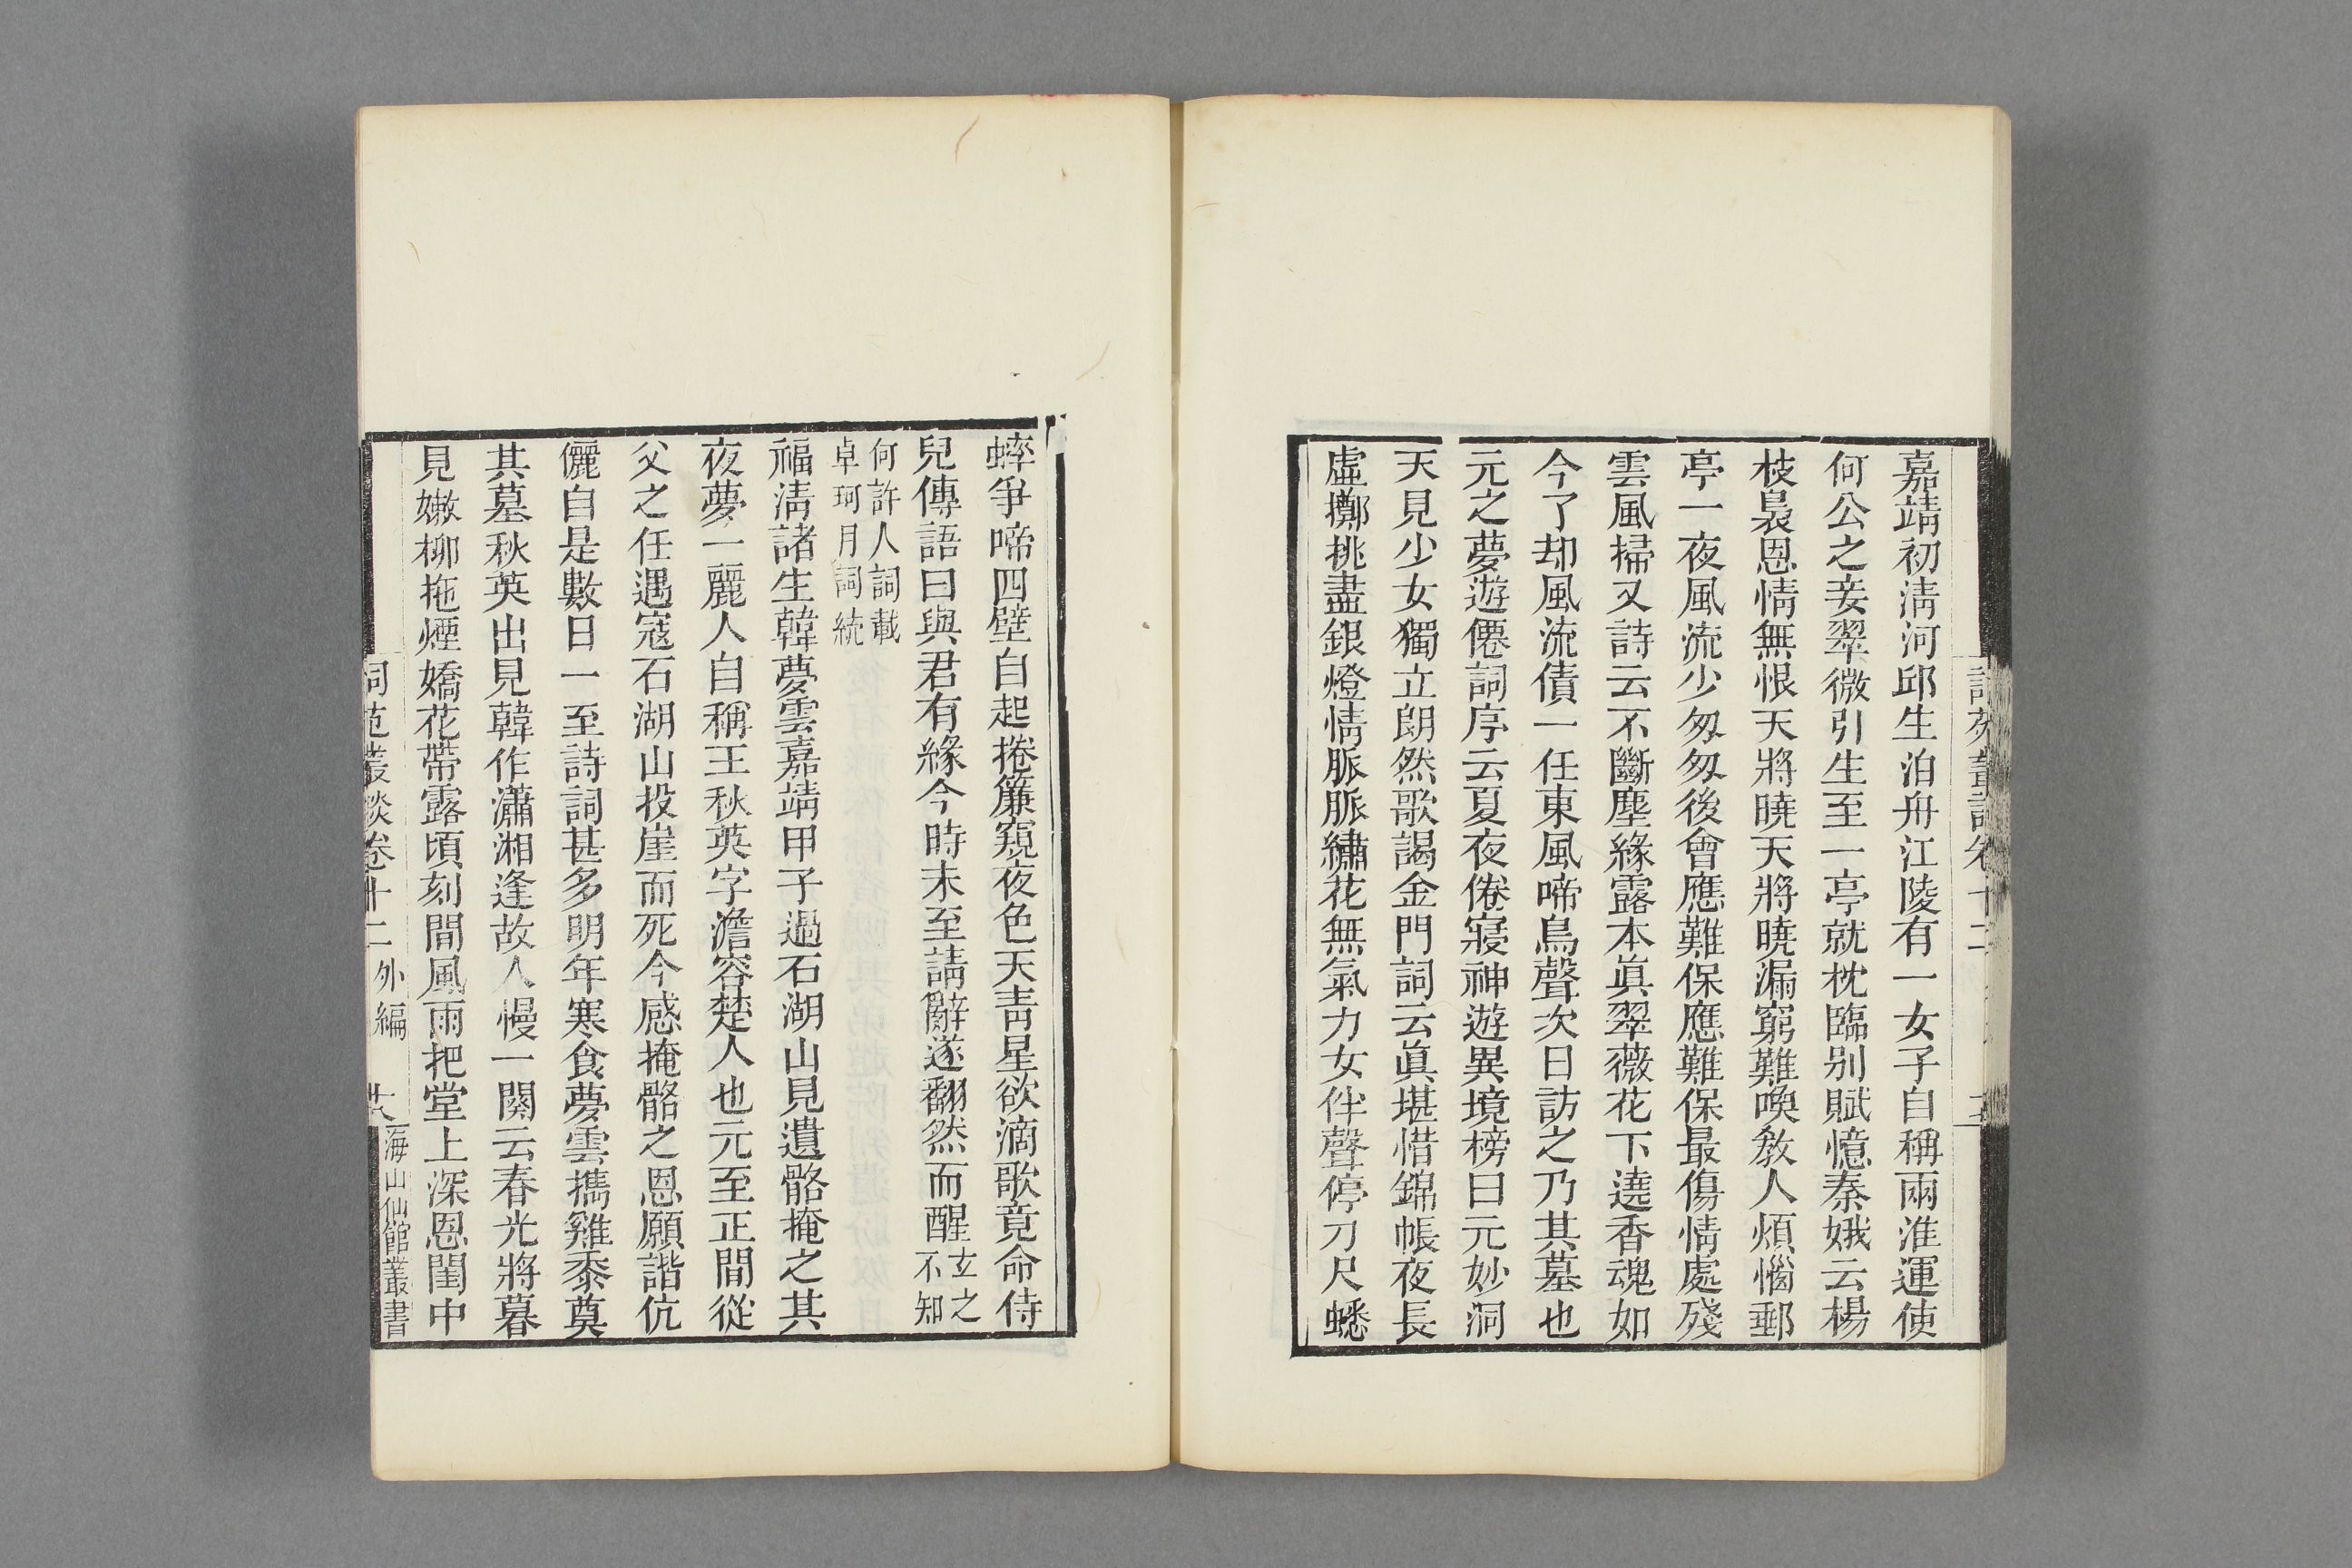 嘉靖初淸河邱生泊舟江陵有一女子自稱兩淮運使
何公之妾翠微引生至一亭就枕臨别賦憶秦娥云楊
枝裊恩情無恨天將曉天將曉漏窮難喚教人煩惱郵
亭一夜風流少匆匆後會應難保應難保最傷情處殘
雲風掃又詩云不斷塵緣露本眞翠薇花下遶香魂如
今了却風流債一任東風啼鳥聲次日訪之乃其墓也
元之夢遊僊詞序云夏夜倦寢神遊異境榜曰元妙洞
天見少女獨立朗然歌謁金門詞云眞堪惜錦帳夜長
虛擲挑盡銀燈情脈脈繡花無氣力女伴聲停刀尺蟋
蟀爭啼四壁自起捲簾窺夜色天靑星欲滴歌竟命侍
兒傳語曰與君有緣今時未至請辭遂翻然而醒玄之不知
何許人詞載
卓珂月詞統
福淸諸生韓夢雲嘉靖甲子過石湖山見遺骼掩之其
夜夢一麗人自稱王秋英字澹容楚人也元至正間從
父之任遇寇石湖山投崖而死今感掩骼之恩願諧伉
儷自是數日一至詩詞甚多明年寒食夢雲攜雞黍奠
其墓秋英出見韓作瀟湘逢故人慢一闋云春光將暮
見嫩柳拖煙嬌花帶露頃刻間風雨把堂上深恩閨中
詞苑叢談卷十二 外編
海山仙館叢書